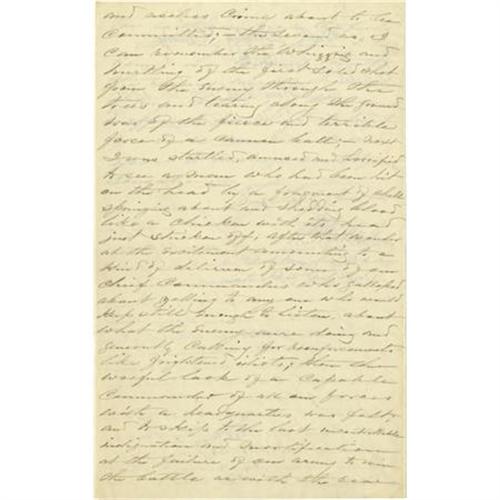 and useless crime about to be
committed; – the second as, I
can remember the whizzing and
hurtling of the first solid shot
from the Enemy through the
trees and tearing along the ground
was of the fierce and terrible
force of a cannon ball; – next
I was startled, amused and horrified
to see a man who had been hit
on the head by a fragment of shell
springing about and shedding blood
like a chicken with its head
just stricken off; after that wonder
at the excitement amounting to a
kind of delirium of some of our
Chief Commanders who galloped
about yelling to any one who would
keep still enough to listen, about
what the Enemy were doing and
generally calling for reenforcements
like frightened idiots; then the
woeful lack of a capable
Commander of all our forces
with a headquarters was felt
and to skip to the last
indignation and mortification
at the failure of our army to win
the battle as with the